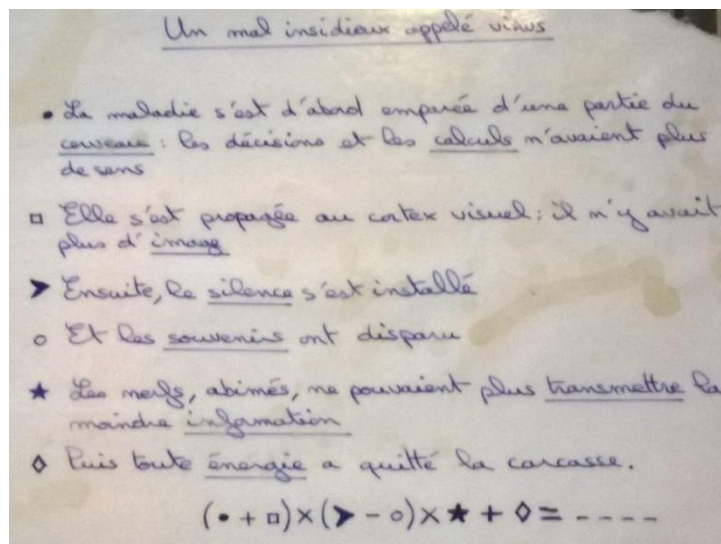 Un mal insidieux appelé virus
• La maladie s'est d'abord emparée d'une partie du
cerveau : les décisions et les calculs n'avaient plus
de sens
□ Elle s'est propagée au cortex visuel : il n'y avait
plus d'image
➤ Ensuite, le silence s'est installé
○ Et les souvenirs ont disparu
★ Les nerfs, abimés, ne pouvaient plus transmettre la
moindre information
◇ Puis toute énergie a quitté la carcasse.
(• + □) × (➤ - ○) × ★ + ◇ = - - - -